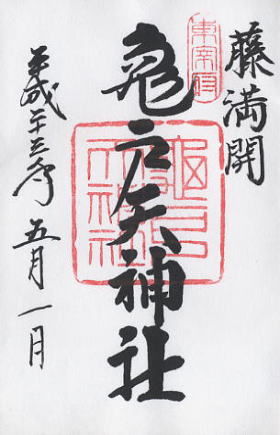 藤満開
東宰府
亀戸天神社
龜戸
天神社
平成二十三年五月一日